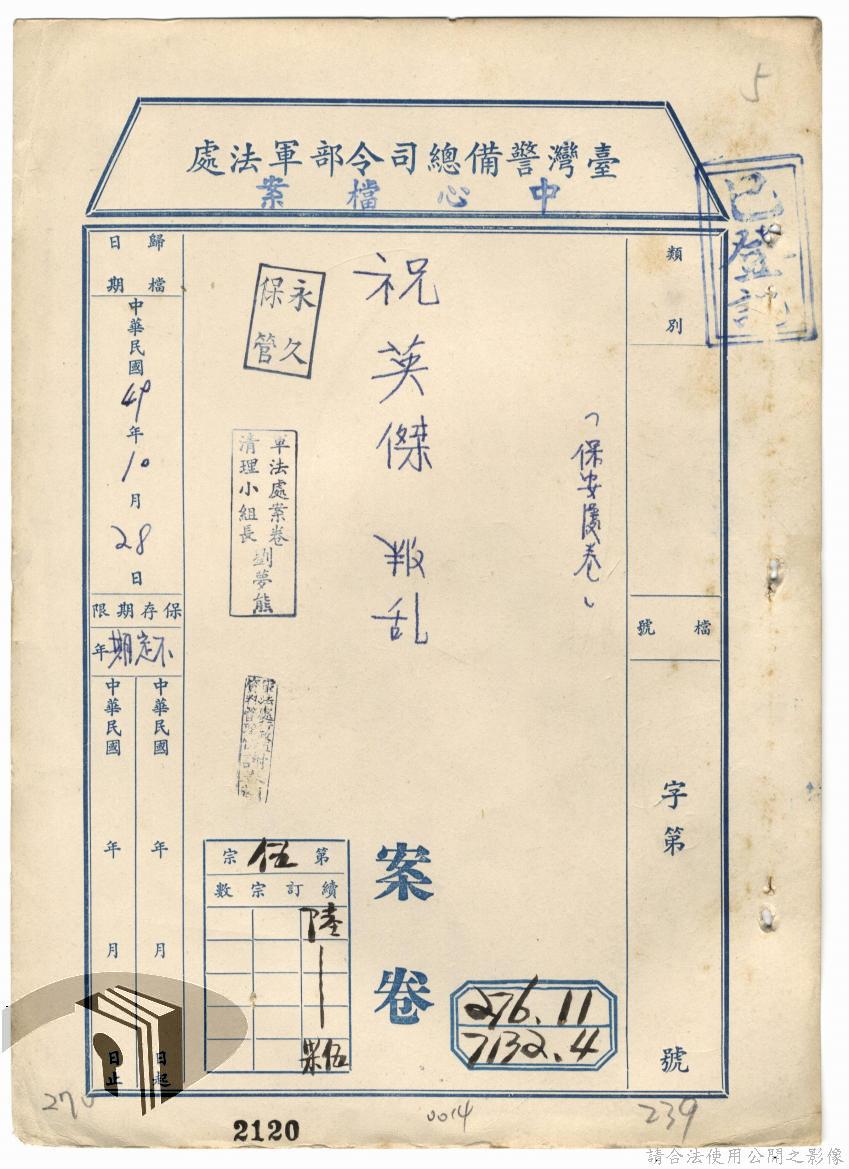 5
臺灣警備總司令部軍法處
中心檔案
已登記
類別
檔號
字第
號
「保安處卷」
祝英傑 叛乱
案卷
永久
保管
軍法處案卷
清理小組長 劉夢熊
第伍宗
續訂宗數
陸
伍
276.11
7132.4
歸檔
日期
中華民國49年10月28日
保存期限
不定期年
中華民國 年 月 日起
中華民國 年 月 日止
2120
0014
239
請合法使用公開之影像